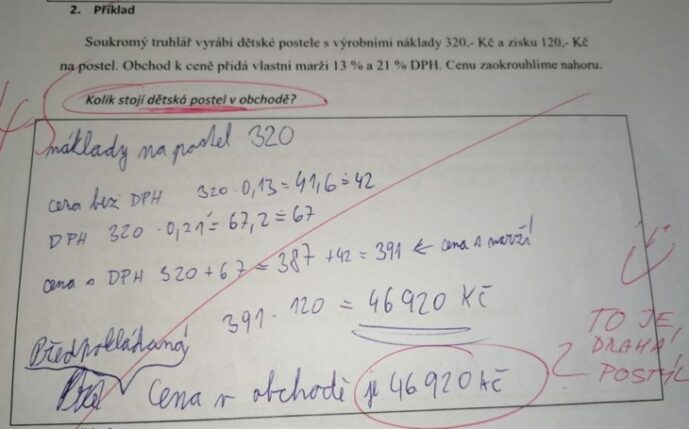 2. Příklad
Soukromý truhlář vyrábí dětské postele s výrobními náklady 320,- Kč a zisku 120,- Kč
na postel. Obchod k ceně přidá vlastní marži 13 % a 21 % DPH. Cenu zaokrouhlíme nahoru.
Kolik stojí dětská postel v obchodě?
náklady na postel 320
cena bez DPH 320 · 0,13 = 41,6 ≐ 42
DPH 320 · 0,21 = 67,2 ≐ 67
cena s DPH 320 + 67 = 387 + 42 = 391 ← cena s marží!
391 · 120 = 46920 Kč
Předpokládaná
Cena v obchodě je 46920 Kč
?
TO JE
DRAHÁ
POSTÝL